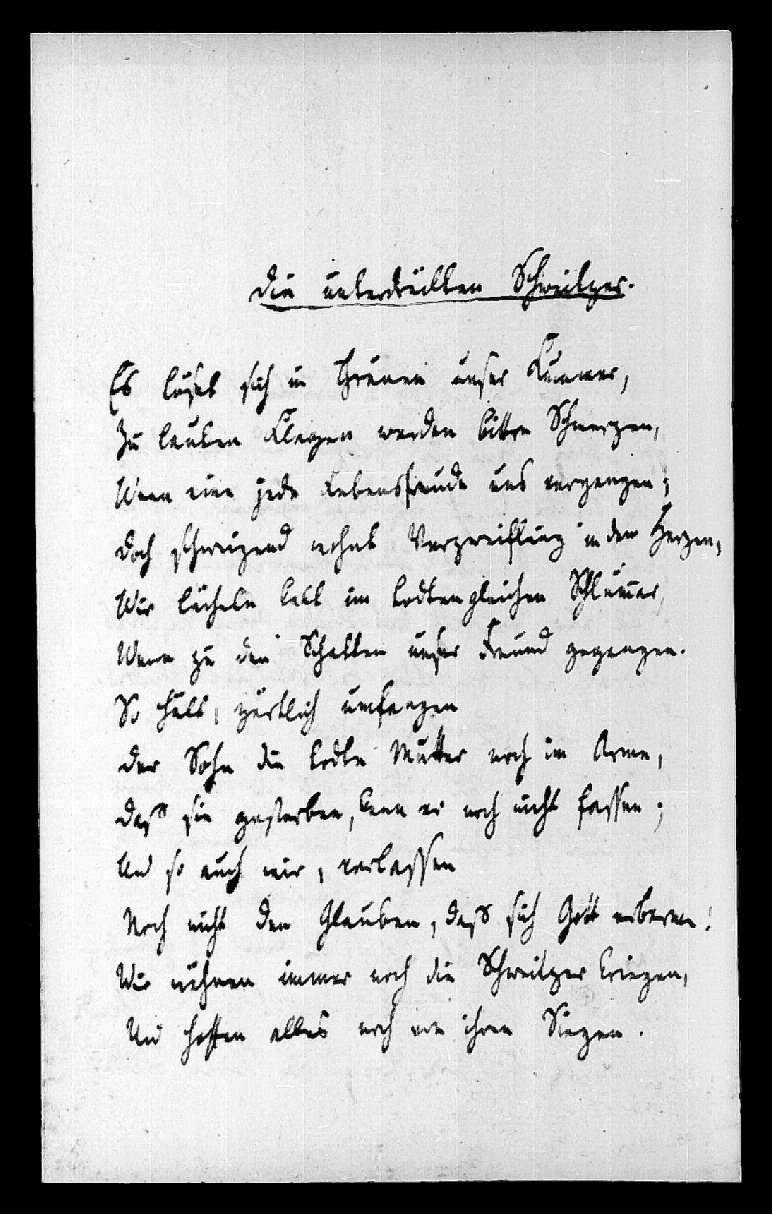 Die unterdrückten Schweitzer.
Es löset sich in Thränen unser Kummer,
Zu lauten Klagen werden bittre Schmerzen,
Wenn eine jede Lebensfreude uns vergangen;
Doch schweigend wohnt Verzweiflung in dem Herzen,
Wir lächeln kalt im todtengleichen Schlummer,
Wenn zu den Schatten unser Freund gegangen.
So hält, zärtlich umfangen
Der Sohn die todte Mutter noch im Arme,
Daß sie gestorben, kann er noch nicht fassen;
Und so auch wir, verlassen
Noch nicht den Glauben, daß sich Gott erbarme!
Wir wähnen immer noch die Schweitzer kriegen,
Und hoffen alles noch von ihren Siegen.